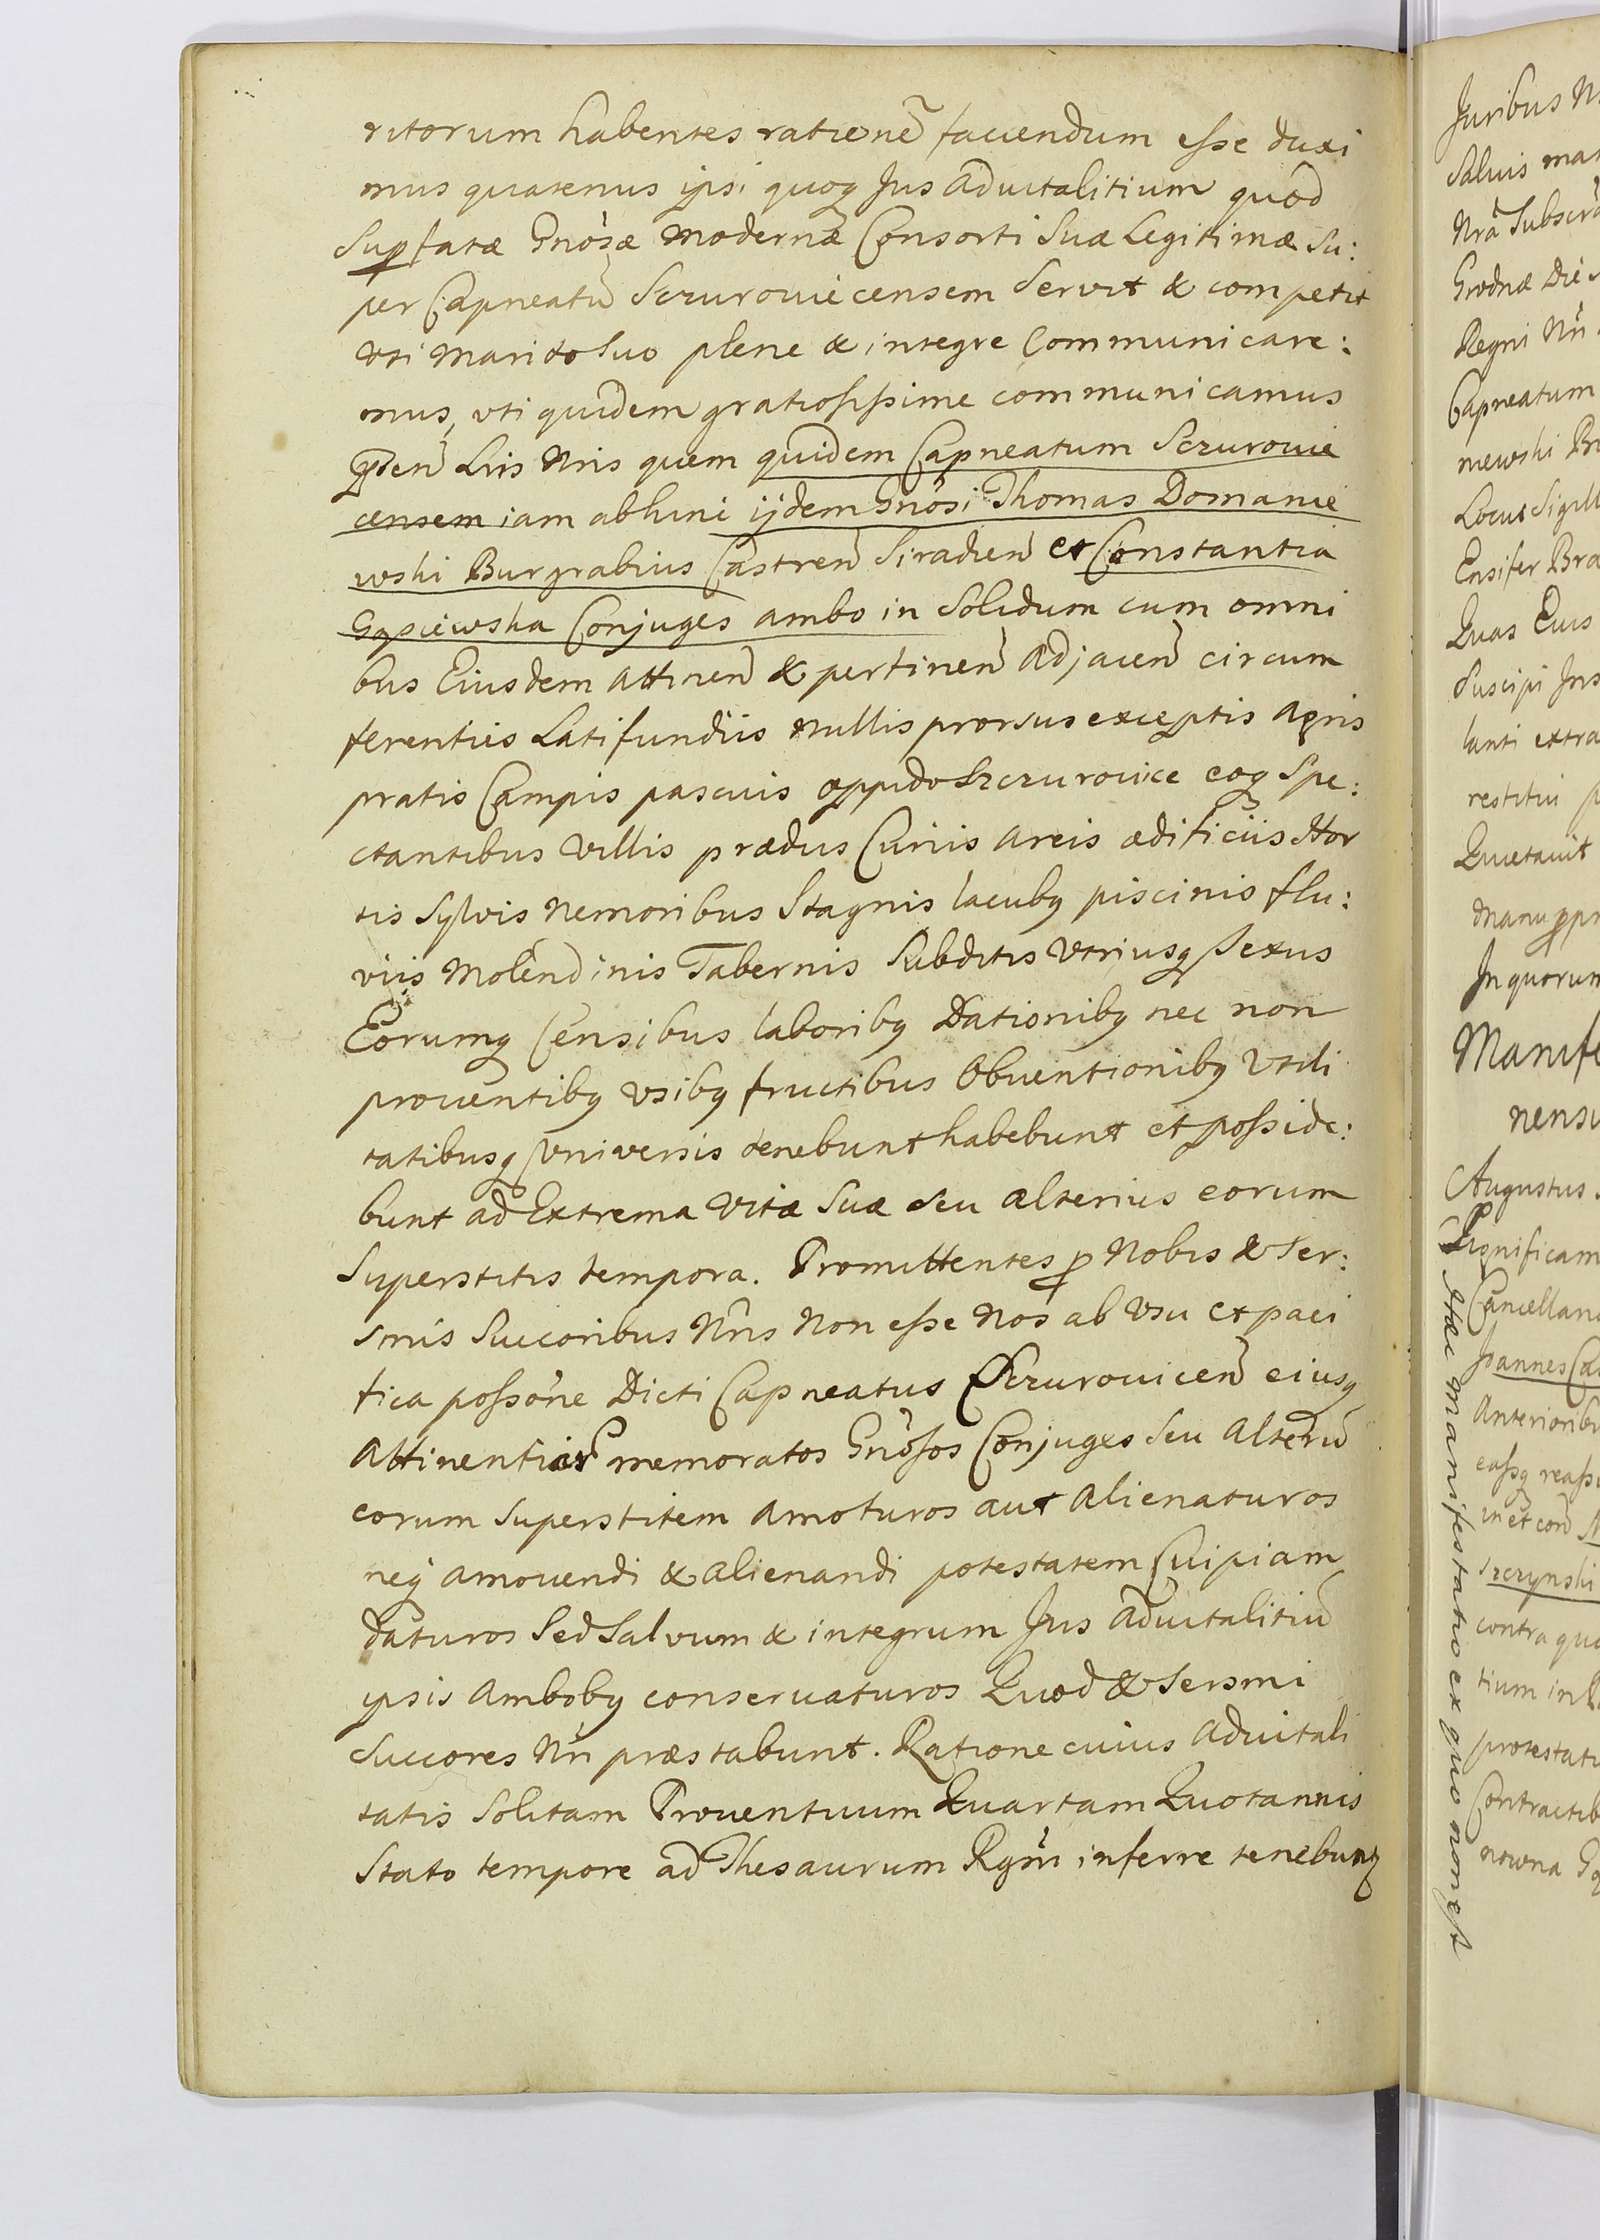 ritorum habentes rationē faciendum esse duxi
mus quatenus ipsi quoq Jus Aduitalitium quod
Supfatæ Gnosæ modernæ Consorti Suæ Legitimæ Su:
per Capneatū Sczurouiecensem Servit & competit
uti marito Suo plene & integre Communicare:
mus, uti quidem gratiosissime communicamus
pten Lris Nris quem quidem Capneatum Sczurouie
censem iam abhinc ijdem Gnosi Thomas Domanie
wski Burgrabius Castren Siradien et Constantia
Gąsiewska Conjuges ambo in Solidum cum omni
bus Eiusdem Attinen & pertinen Adjacen circum
ferentiis Latifundiis nullis prorsus exceptis Agris
pratis Campis pascuis oppido Szczurowice eoq Spe:
ctantibus villis prædiis Curiis areis ædificiis Hor
tis Sylvis Nemoribus Stagnis lacubq piscinis flu:
viis Molendinis Tabernis Subditis Utriusq Sexus
Eorumq Censibus laboribq Dationibq nec non
prouentibq usibq fructibus Obuentionibq Utili
tatibusq Universis tenebunt habebunt et posside:
bunt ad Extrema Vitæ Suæ seu alterius eorum
Superstitis tempora. Promittentes p Nobis & Ser:
smis Succoribus Nris Non esse Nos ab Usu et paci
fica possone Dicti Capneatus Sczurouicen eiusq
Attinentiis memoratos Gnosos Conjuges Seu Alterū
eorum Superstitem Amoturos aut Alienaturos
neq Amouendi & Alienandi potestatem Cuipiam
daturos Sed Salvum & integrum Jus Aduitalitiū
ipsis Ambobq conseruaturos Quod & Sersmi
Succores Nri præstabunt. Ratione cuius Aduitali
tatis Solitam Prouentuum Quartam Quotannis
Stato tempore ad Thesaurum Regni inferre tenebunt
Juribus
Saluis
Nra
Grodnæ Die
Regni Nri
Capneatum
niewski
Locus Sigill
Ensifer
Quas Eius
Suscipi
extra
restitui
Quietauit
Manu
In quorum
Manife
Augustus
Significam
Cancellari
Joannes
Anterioribu
Szczynski
contra
tium in
protestat
Contractib
Hæc manifestatio ex quo non est